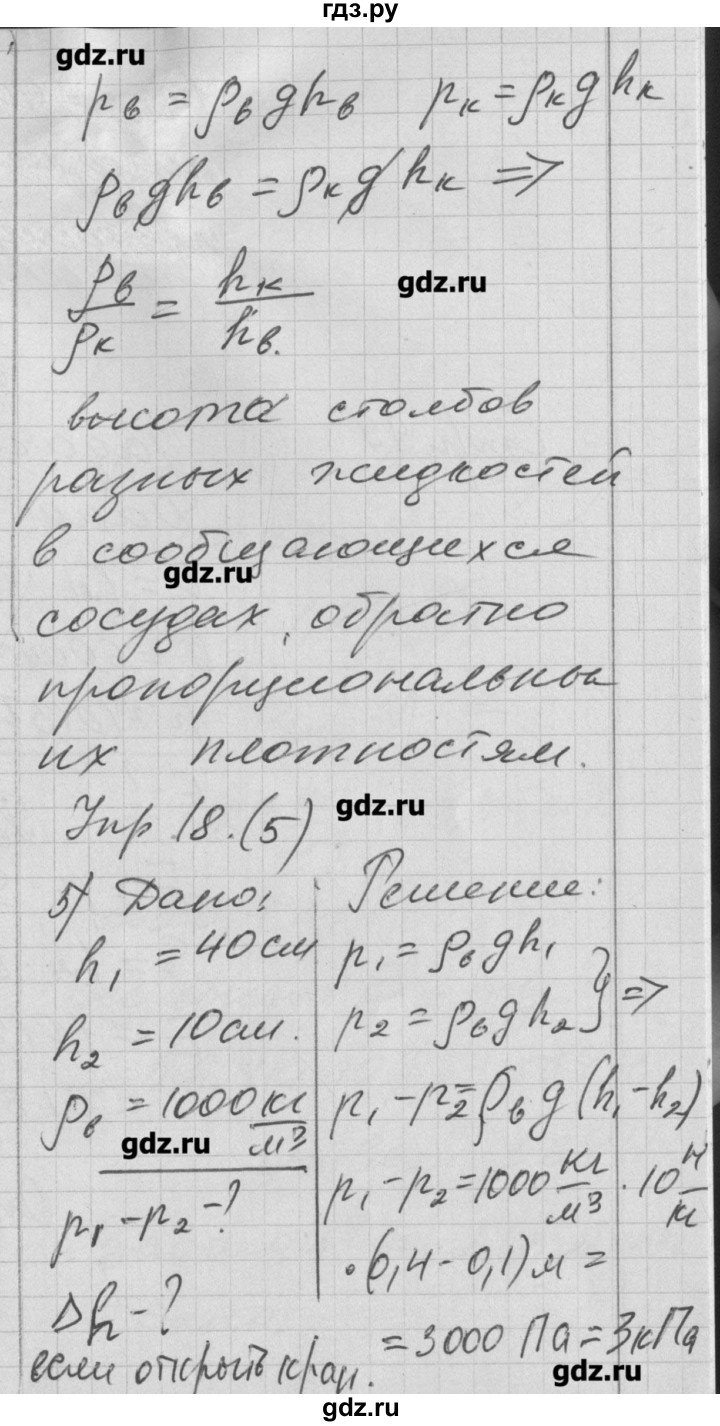 гдз.ру
gdz.ru
pв = ρв g hв pк = ρк g hк
ρв g hв = ρк g hк =>
ρв/ρк = hк/hв.
gdz.ru
высота столбов
разных жидкостей
в сообщающихся
gdz.ru
сосудах, обратно
пропорциональны
их плотностям.
gdz.ru
Упр 18.(5)
5) Дано:
h₁ = 40 см
h₂ = 10 см.
ρв = 1000 кг/м³
gdz.ru
p₁ - p₂ - ?
Δh - ?
если открыть кран.
Решение:
p₁ = ρв g h₁
p₂ = ρв g h₂ } =>
p₁ - p₂ = ρв g (h₁ - h₂)
p₁ - p₂ = 1000 кг/м³ · 10 Н/кг
· (0,4 - 0,1) м =
= 3000 Па = 3 кПа
gdz.ru
gdz.ru